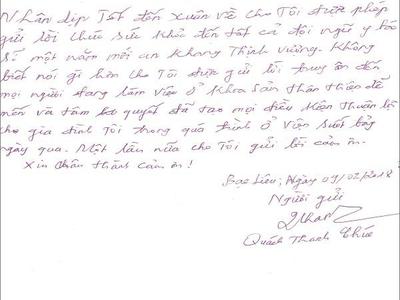 Nhân dịp Tết đến xuân về cho Tôi được phép
gửi lời chúc sức khỏe đến tất cả đội ngũ y bác
sĩ một năm mới an Khang Thịnh vượng. Không
biết nói gì hơn cho Tôi được gửi lời trung ơn đến
mọi người đang làm việc ở Khoa sản thân thiện dễ
mến và tâm quyết đã tạo mọi điều kiện thuận lợi
cho gia đình Tôi trong quá trình ở viện suốt bảy
ngày qua. Một lần nữa cho Tôi gửi lời cảm ơn.
Xin chân thành cảm ơn!
Bạc Liêu, Ngày 09/02/2018
Người gửi
Quách Thanh Thúc